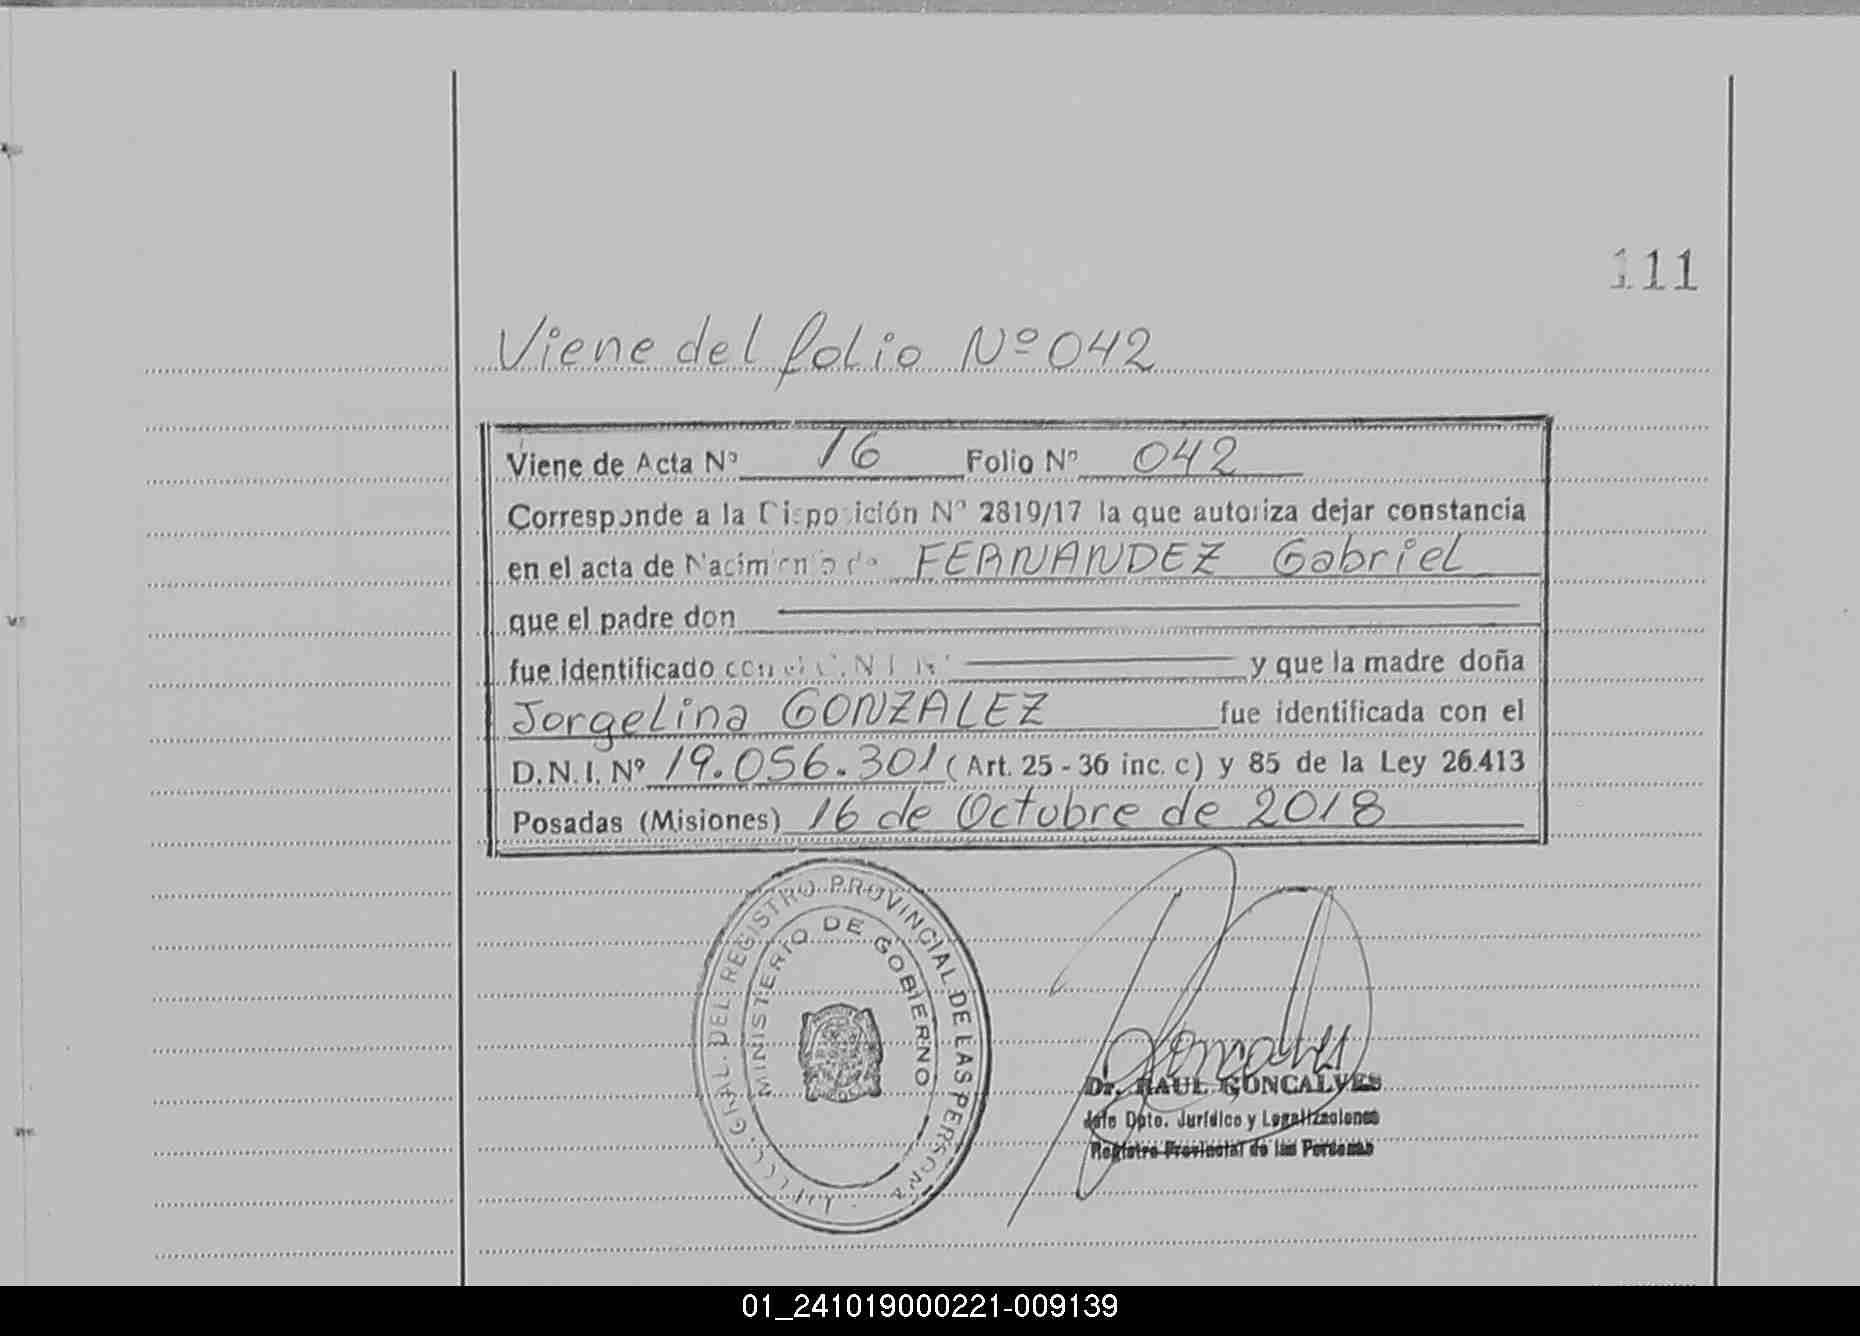 111
Viene del folio Nº 042
Viene de Acta Nº 16 Folio Nº 042
Corresponde a la Disposición Nº 2819/17 la que autoriza dejar constancia
en el acta de Nacimiento de FERNANDEZ Gabriel
que el padre don
fue identificado con el D.N.I. Nº y que la madre doña
Jorgelina GONZALEZ fue identificada con el
D.N.I. Nº 19.056.301 (Art. 25 - 36 inc. c) y 85 de la Ley 26.413
Posadas (Misiones) 16 de Octubre de 2018
GRAL. DEL REGISTRO PROVINCIAL DE LAS PERSONAS
MINISTERIO DE GOBIERNO
Goncalves
Dr. RAUL GONCALVES
Jefe Dpto. Jurídico y Legalizaciones
Registro Provincial de las Personas
01_241019000221-009139